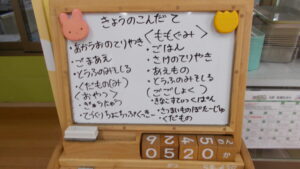 きょうのこんだて
・あかうおのてりやき
・ごまあえ
・とうふのみそしる
・くだもの(み)
<おやつ>
・ぎゅうにゅう
<ももぐみ>
・ごはん
・さけのてりやき
・あえもの
・とうふのみそしる
(ごごしょく)
・きなこ
・さつまいものぽたーじゅ
・くだもの
0520